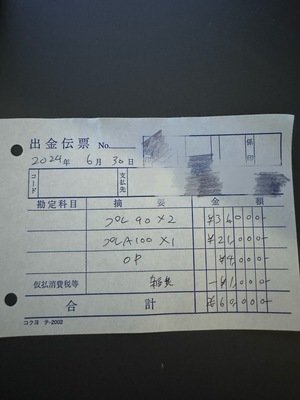 出金伝票 No.
2024年 6月 30日
係印
コード 支払先
勘定科目 摘要 金額
プレ90×2 ¥36000-
プレA100×1 ¥21000-
OP ¥4000-
仮払消費税等 雑費 -¥1000-
合計 ¥60000-
コクヨ テ-2002